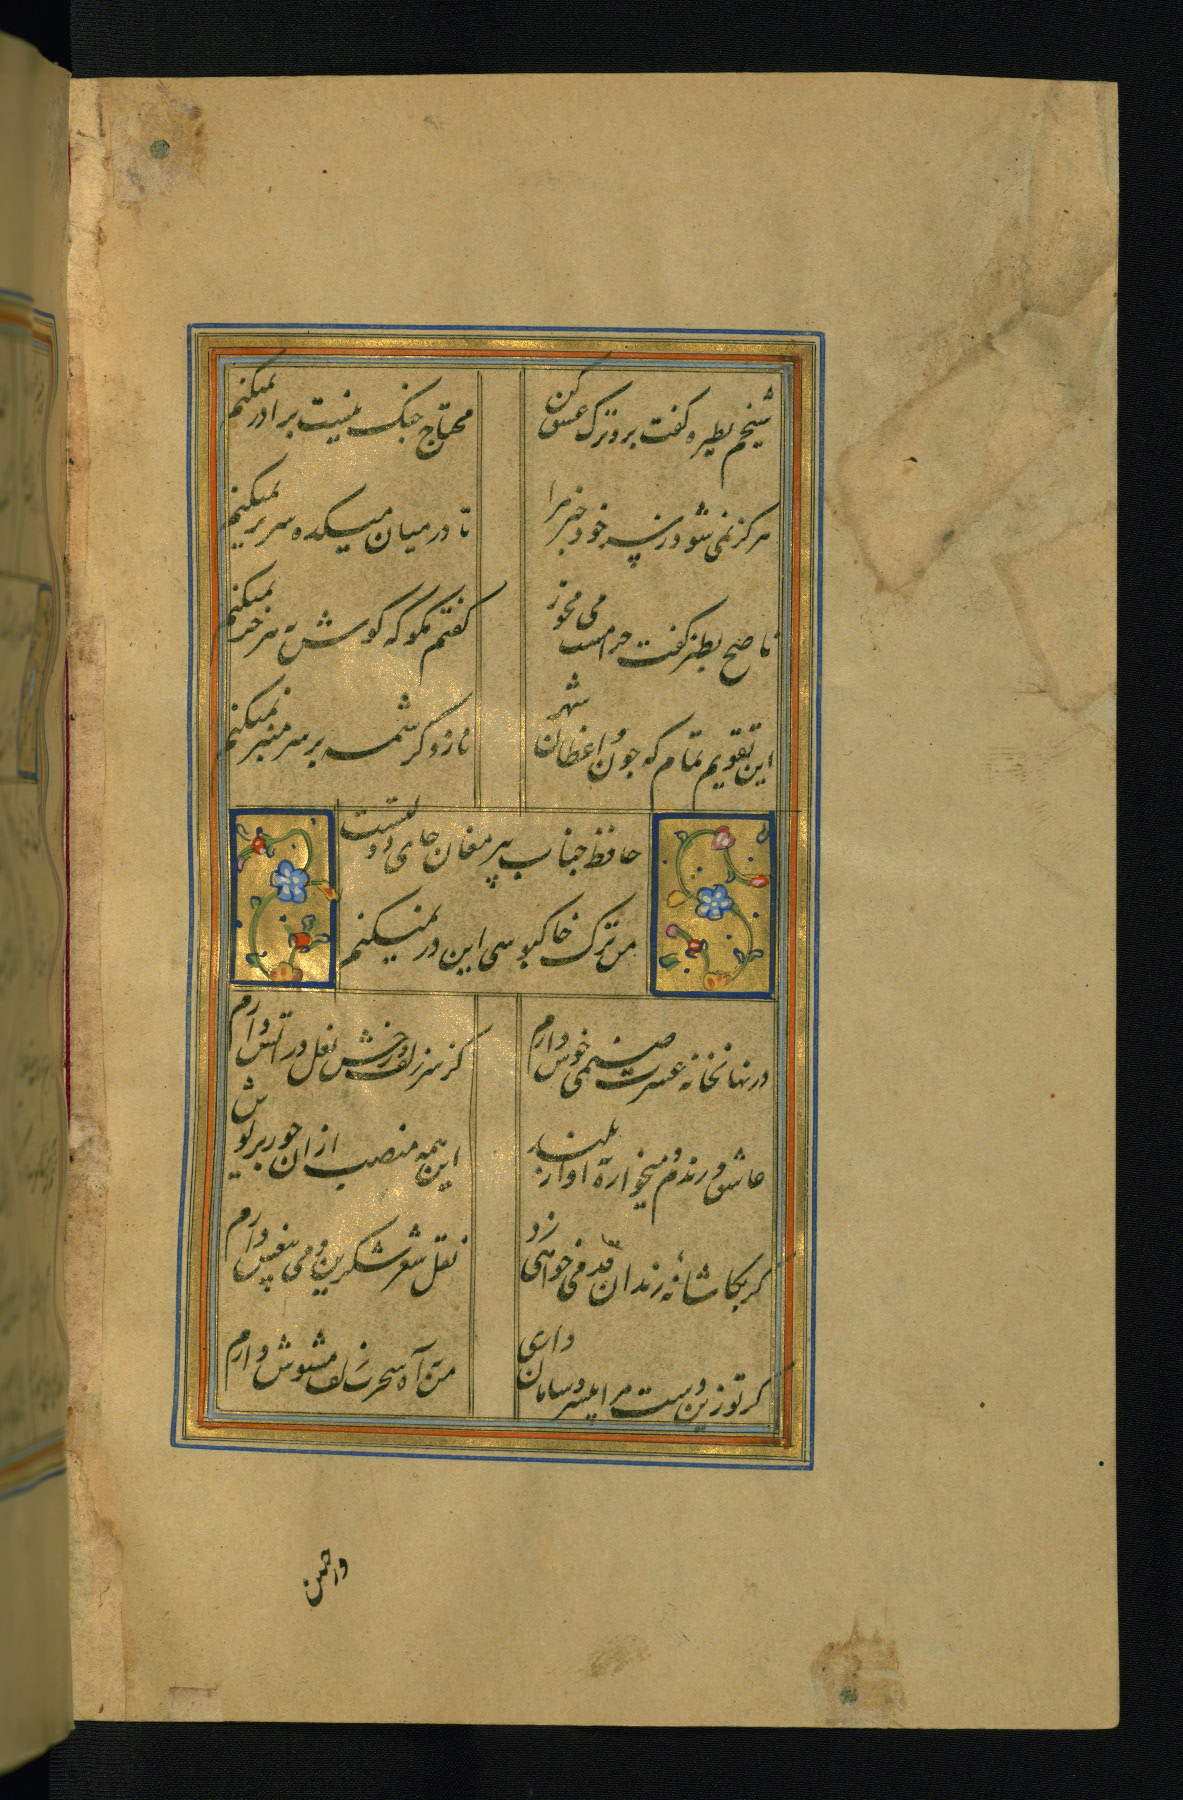 شیخم بطیره گفت برو ترک عشق کن
محتاج جنگ نیست برادر نمیکنم
هرگز نمی شود ز سر خود خبر مرا
تا در میان میکده سر بر نمیکنم
ناصح بطنز گفت حرامست می مخور
گفتم مگو که گوش به هر خر نمیکنم
این تقویم تمام که چون واعظان شهر
ناز و کرشمه بر سر منبر نمیکنم
حافظ جناب پیر مغان جای دولتست
من ترک خاکبوسی این در نمیکنم
در نهانخانه عشرت صنمی خوش دارم
کز سر زلف و رخش نعل در آتش دارم
عاشق و رندم و میخواره بآواز بلند
این همه منصب از آن حور پریوش
گر بکاشانه رندان قدمی خواهی زد
نقل شعر شکرین و می بیغش دارم
گر تو زین دست مرا بی سر و سامان داری
من به آه سحرت زلف مشوش دارم
ور چنین